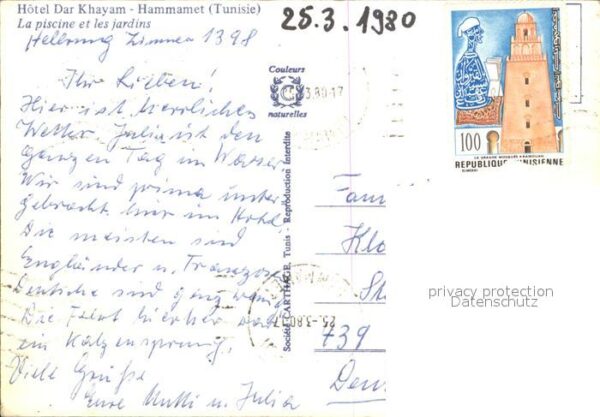 Hôtel Dar Khayam - Hammamet (Tunisie)
La piscine et les jardins
25.3.1980
Zimmer 1398
Ihr Lieben!
Hier ist herrliches
Wetter. Julia ist den
ganzen Tag im Wasser
Wir sind prima unter
gebracht hier im Hotel
Die meisten sind
Engländer u. Franzosen
Deutsche sind ganz wenig
Die Fahrt hierher war
ein Katzensprung.
Viele Grüße
Eure Mutti u. Julia
Couleurs
C
naturelles
Société CARTHAGE, Tunis - Reproduction Interdite
3.80-17
25-3.80 17
100
LA GRANDE MOSQUEE KAIROUAN
REPUBLIQUE TUNISIENNE
Fam
Klo
St
739
Deu
privacy protection
Datenschutz